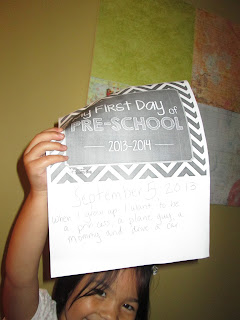 My FIRST DAY of
PRE-SCHOOL
2013-2014
September 5, 2013
When I grow up I want to be
a princess, a plane guy, a
mommy and have a car